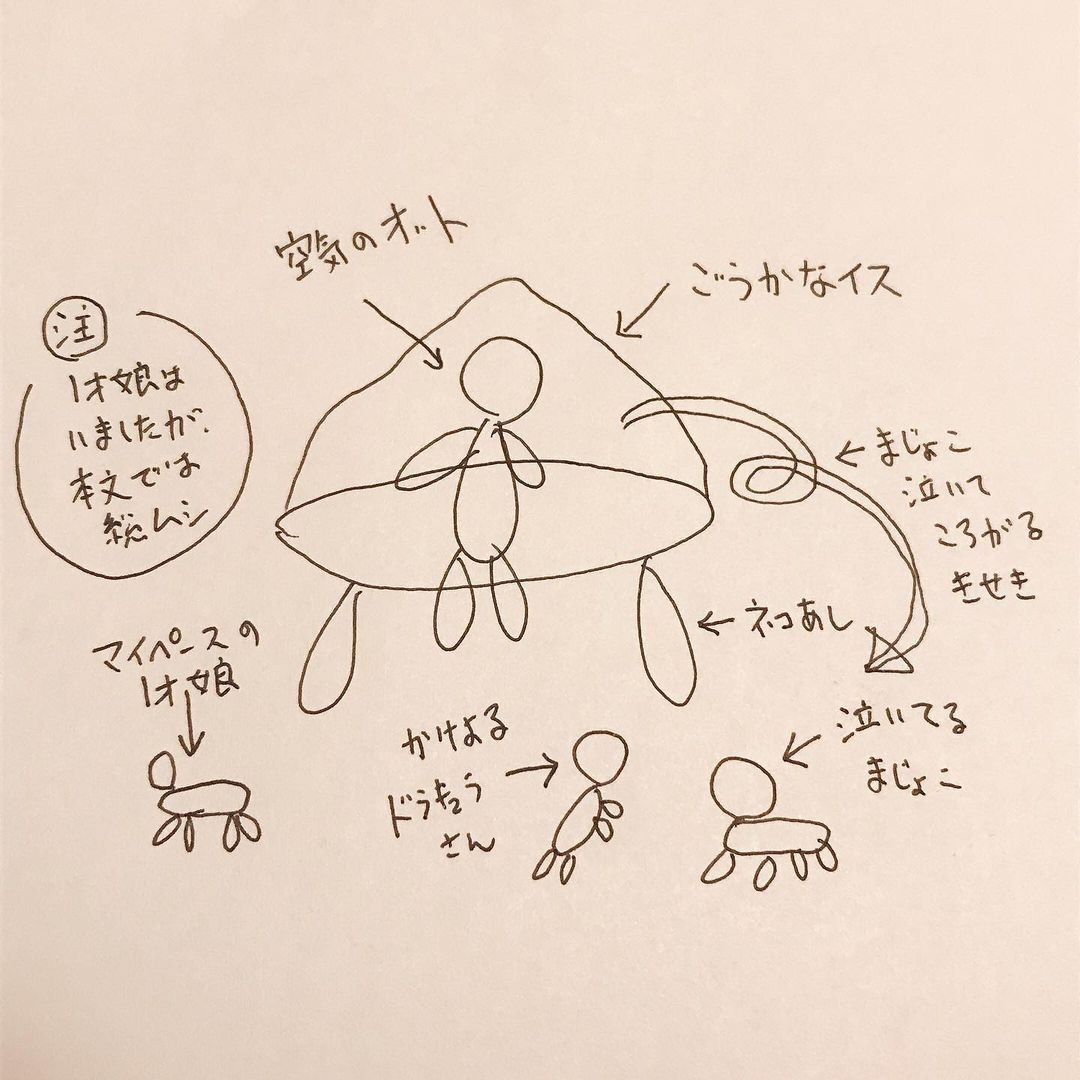 空気のオット
ごうかなイス
注
1才娘は
いましたが、
本文では
総ムシ
←まじょこ
泣いて
ころがる
きせき
←ネコあし
マイペースの
1才娘
かけよる
ドラキュラ
さん
泣いてる
まじょこ